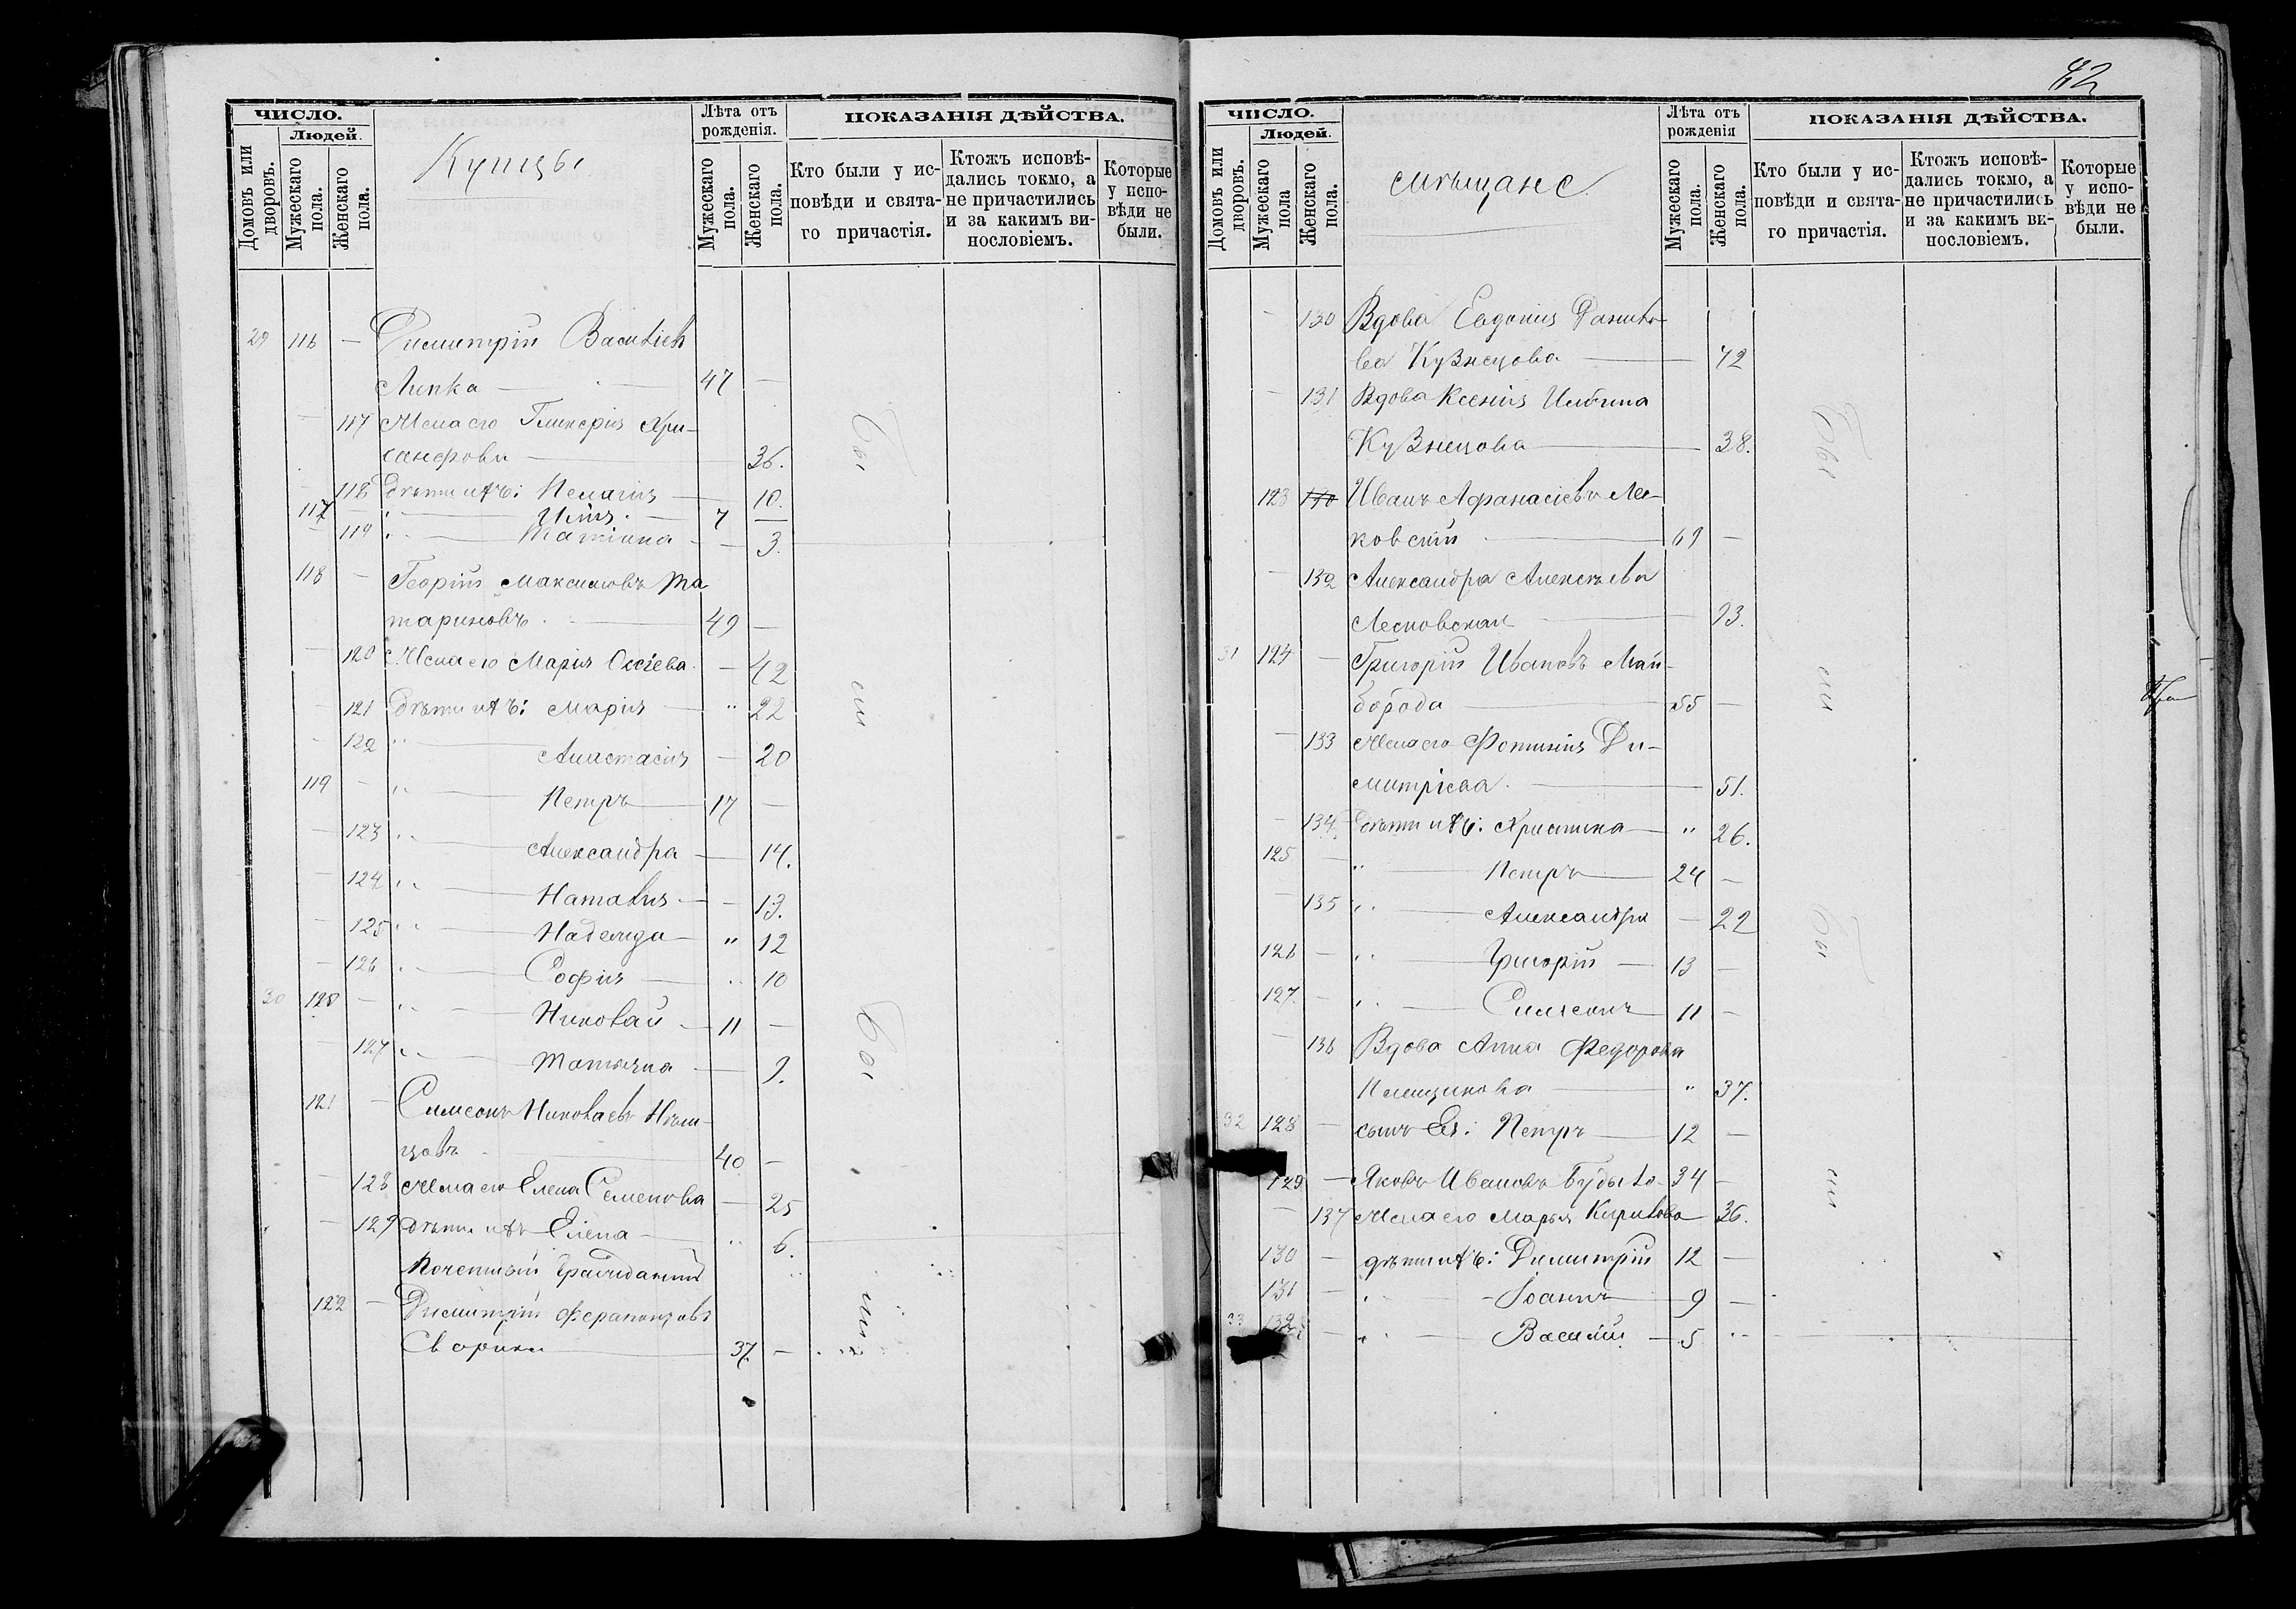 ЧИСЛО.
Людей.
Домовъ или дворовъ.
Мужескаго пола.
Женскаго пола.
Купцы
Лѣта отъ рожденія.
Мужескаго пола.
Женскаго пола.
ПОКАЗАНІЯ ДѢЙСТВА.
Кто были у ис-
повѣди и свята-
го причастія.
Ктожъ исповѣ-
дались токмо, а
не причастились
и за какимъ ви-
нословіемъ.
Которые
у испо-
вѣди не
были.
29 116 — Димитрій Василіев
Липка — 47 —
— 117 Жена его Гликерія Хри-
санфова — 36.
— 118 Дѣти ихъ: Пелагія — 10.
117 — 7
— 119 Татіана — 3.
118 — Георгій Максимовъ Та
тариновъ 49 —
— 120 Жена его Марія — 42
— 121 Дѣти ихъ: Марія — " 22
— 122 " Анастасія — 20
119 — " Петръ 17 —
— 123 " Александра — 14.
— 124 " Наталія — 13.
— 125 " Надежда — " 12
— 126 " Софія — " 10
30 120 — " Николай — 11 —
— 127 " Татьяна — 9.
121 — Симеонъ Николаевъ Нѣм-
цовъ 40 —
— 128 Жена его Елена Семенова — 25
— 129 Дѣти ихъ Елена — " 6.
Почетный Гражданинъ
122 — Димитрій Ферапонтовъ
37. —
Бы
ли
Бы
ли
42
ЧИСЛО.
Людей.
Домовъ или дворовъ.
Мужескаго пола
Женскаго пола.
мѣщане
Лѣта отъ рожденія
Мужескаго пола.
Женскаго пола.
ПОКАЗАНІЯ ДѢЙСТВА.
Кто были у ис-
повѣди и свята-
го причастія.
Ктожъ исповѣ-
дались токмо, а
не причастились
и за какимъ ви-
нословіемъ.
Которые
у испо-
вѣди не
были.
— 130 Вдова Евдокія Данило-
ва Кузнецова — 72
— 131 Вдова Ксенія Ильина
Кузнецова — 38.
123 Иванъ Афанасіевъ Лес-
ковскій 69 —
— 132 Александра Алексѣева
Лесковская
31 124 — Григорій Ивановъ Май-
борода 55 —
— 133 Жена его Фотинія Ди-
митріева. — 51.
— 134 Дѣти ихъ: Христина — " 26.
125 — " Петръ 24 —
— 135 " Александра — 22
126 — " Григорій — 13 —
127. — " Симеонъ 11 —
— 136 Вдова Анна Федорова
" 37.
32 128 — сынъ Ея: Петръ 12 —
129 — Яковъ Ивановъ Будыло 34 —
— 137 Жена его Марья Кирилова 36.
130 — дѣти ихъ: Димитрій 12 —
131 — " Іоаннъ 9 —
33 132 — " Василій — 5 "
Бы
ли
Бы
ли